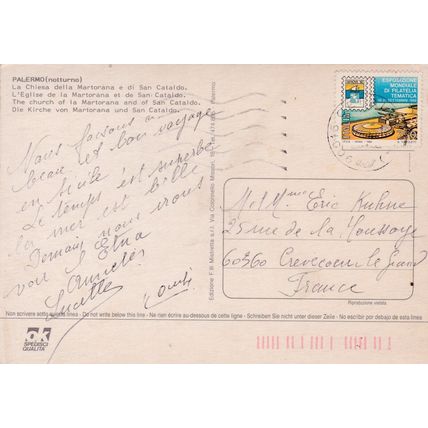 PALERMO (notturno)
La Chiesa della Martorana e di San Cataldo.
L'Eglise de la Martorana et de San Cataldo.
The church of la Martorana and of San Cataldo.
Die Kirche von Martorana und San Cataldo.
Nous faisons un
beau et bon voyage
en Sicile
Le temps est superbe
la mer est belle
Demain nous irons
voir l'Etna
Amitiés
Edizione F.lli Mistretta s.r.l. Via Colonnello
Palermo
ESPOSIZIONE
MONDIALE
DI FILATELIA
TEMATICA
M. Mme Eric Kuhne
25 rue de la Houssoye
60360 Crevecoeur le Grand
France
Riproduzione vietata
Non scrivere sotto questa linea - Do not write below this line - Ne rien écrire au-dessous de cette ligne - Schreiben Sie nicht unter dieser Zeile - No escribir por debajo de esta linea
OK
SPEDISCI
QUALITÀ